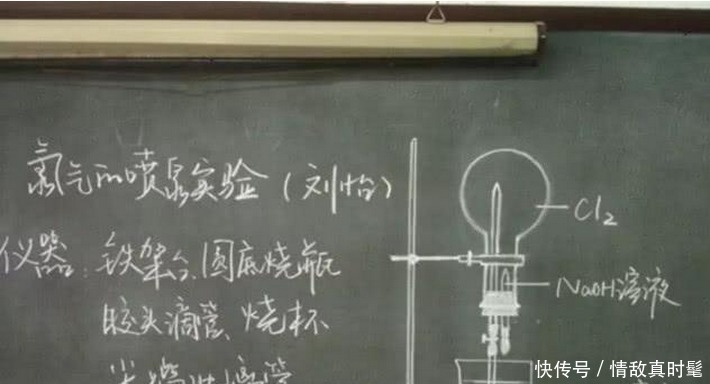 氯气的喷泉实验（刘怡）
Cl₂
仪器：铁架台、圆底烧瓶
NaOH溶液
胶头滴管、烧杯
快传号/情敌真时髦